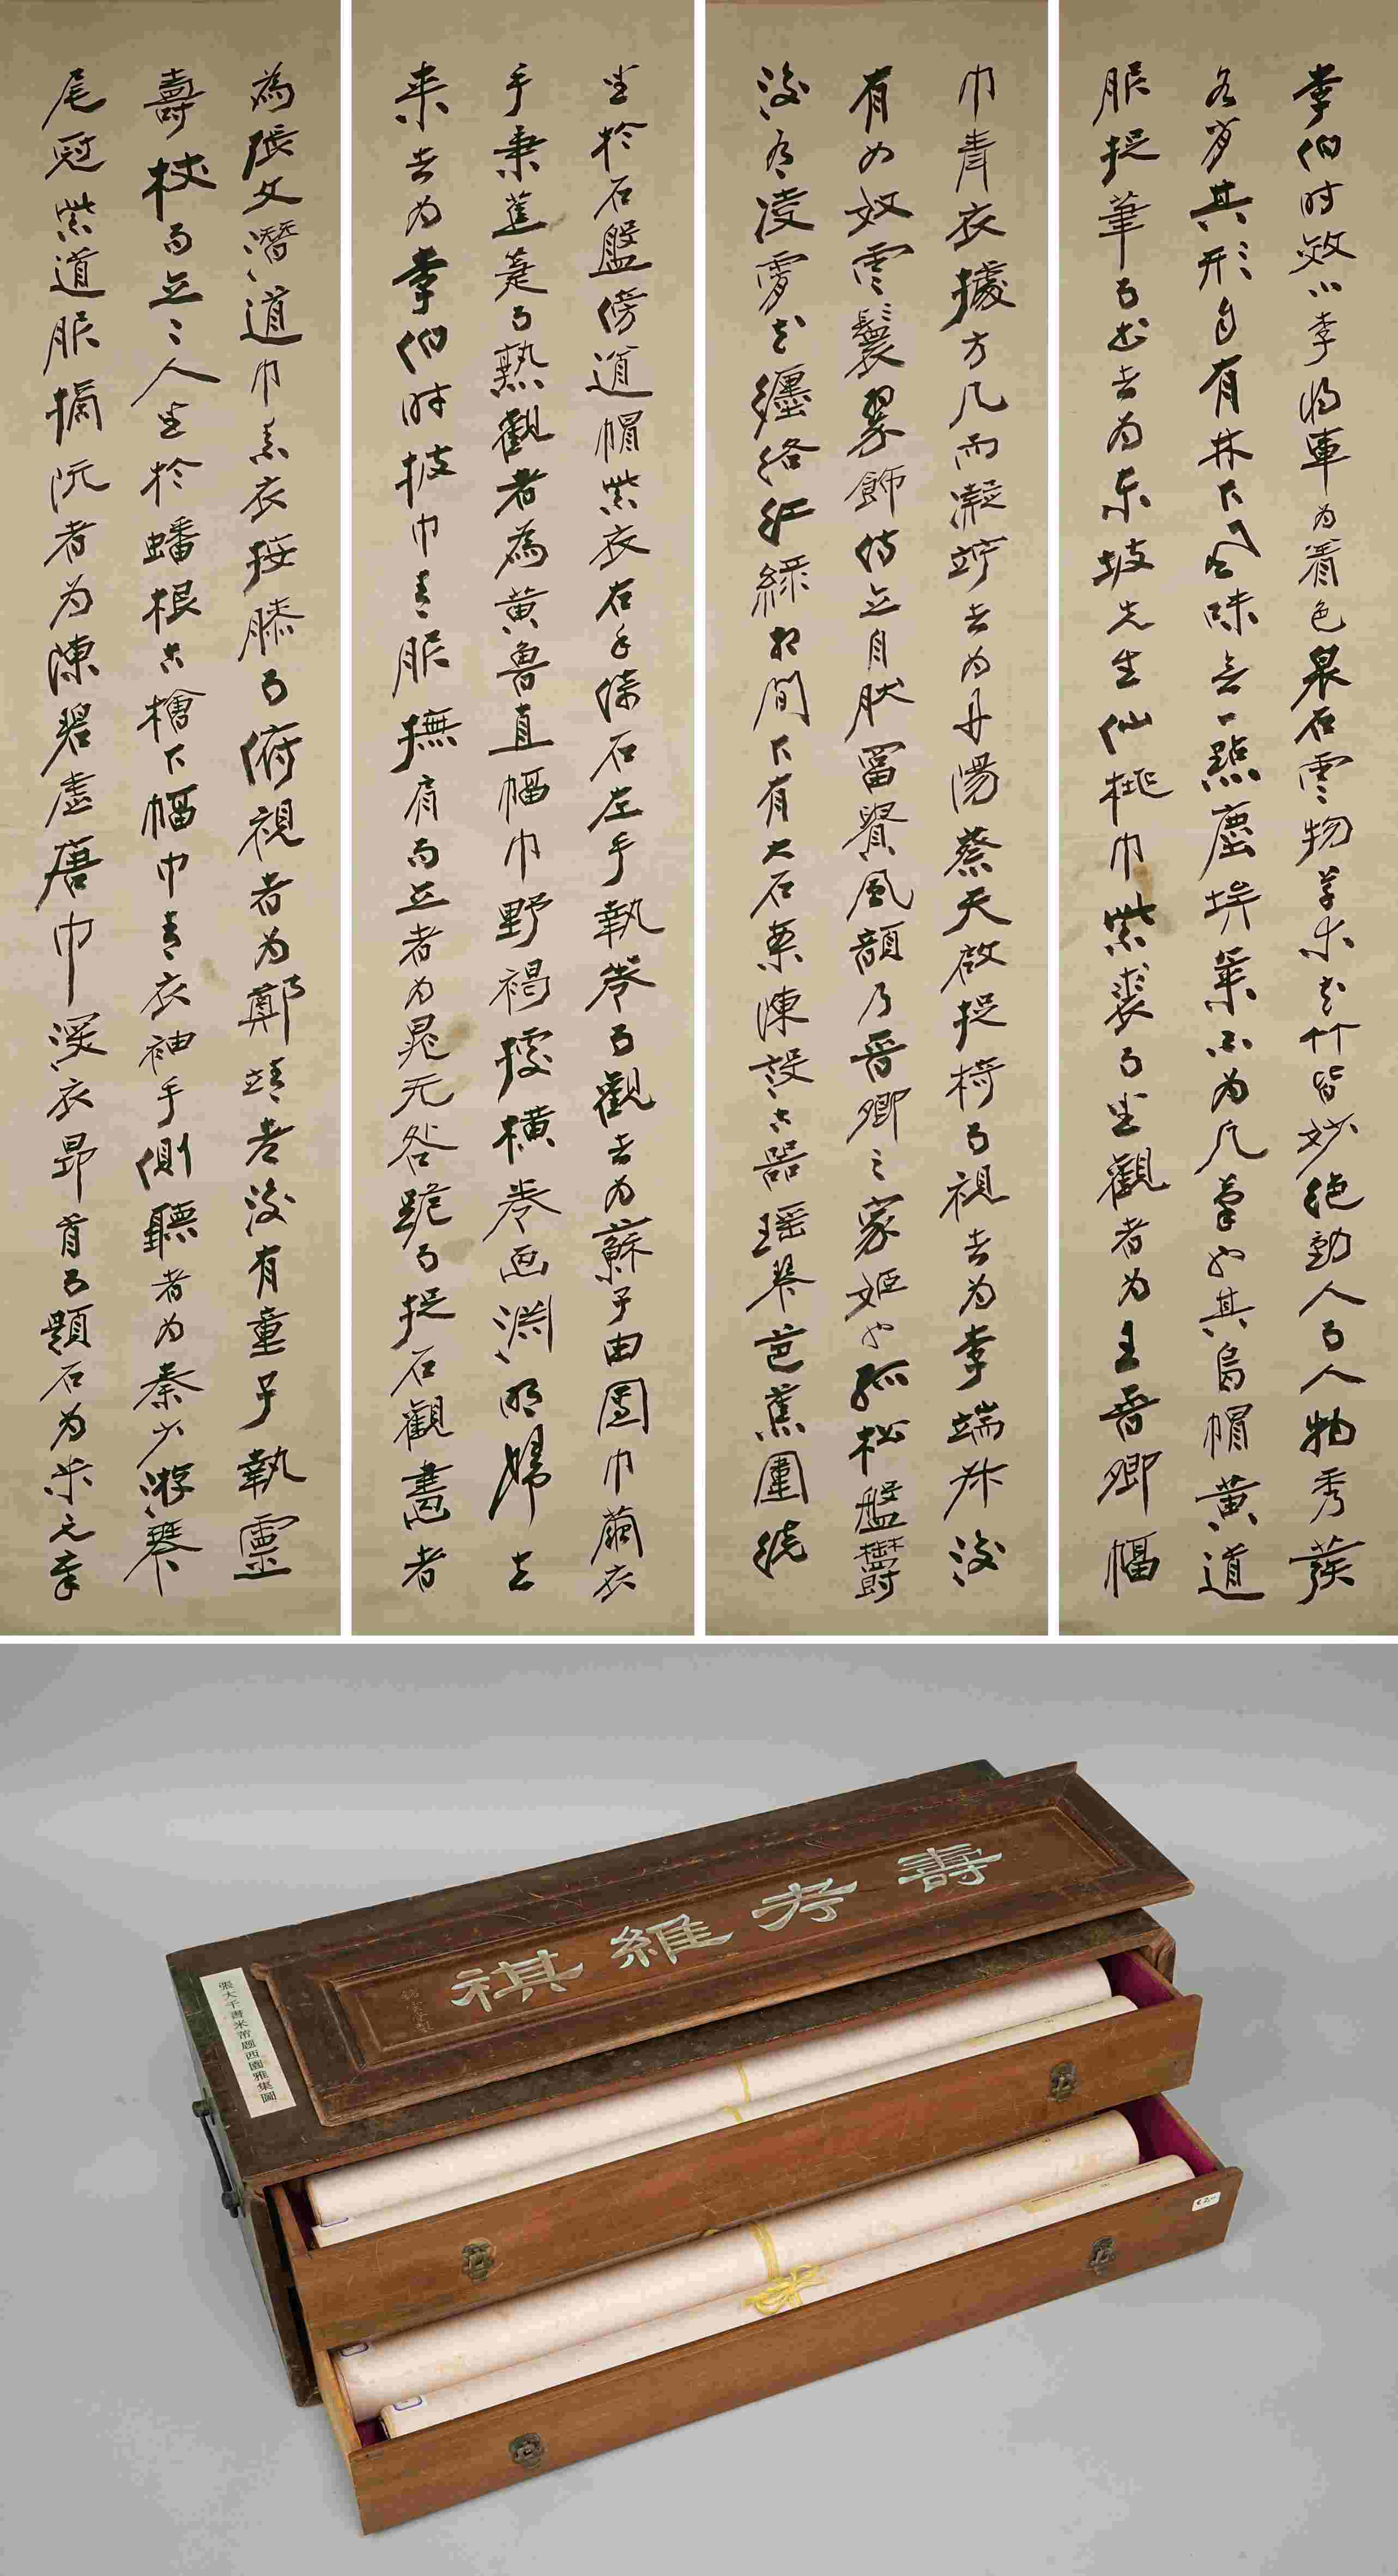 李伯時效小李將軍為着色泉石雲物草木花竹皆妙絕動人而人物秀發
各肖其形自有林下風味無一點塵埃氣不為凡筆也其烏帽黃道
服捉筆而書者為東坡先生仙桃巾紫裘而坐觀者為王晉卿幅
巾青衣據方几而凝竚者為丹陽蔡天啟捉椅而視者為李端叔後
有女奴雲鬟翠飾侍立自然富貴風韻乃晉卿之家姬也孤松盤鬱
後有凌霄花纏絡紅綠相間下有大石案陳設古器瑤琴芭蕉圍繞
坐於石盤傍道帽紫衣右手倚石左手執卷而觀者為蘇子由團巾繭衣
手秉蕉箑而熟觀者為黃魯直幅巾野褐據橫卷画淵明歸去
来者為李伯時披巾青服撫肩而立者為晁无咎跪而捉石觀畫者
為張文潛道巾素衣按膝而俯視者為鄭靖老後有童子執靈
壽杖而立二人坐於蟠根古檜下幅巾青衣袖手側聽者為秦少游琴
尾冠紫道服摘阮者為陳碧虛唐巾深衣昂首而題石為米元章
壽考維祺
張大千書米芾題西園雅集圖